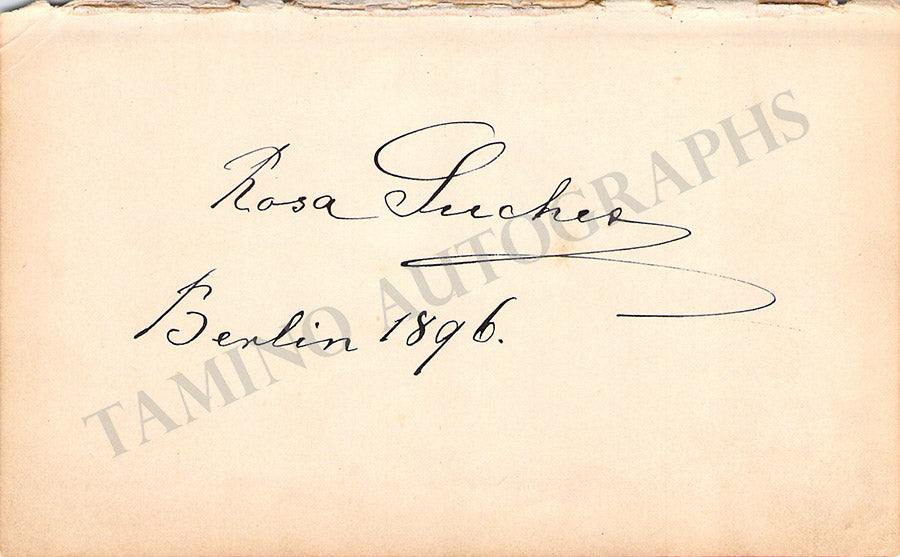 Rosa Sucher
Berlin 1896.
TAMINO AUTOGRAPHS